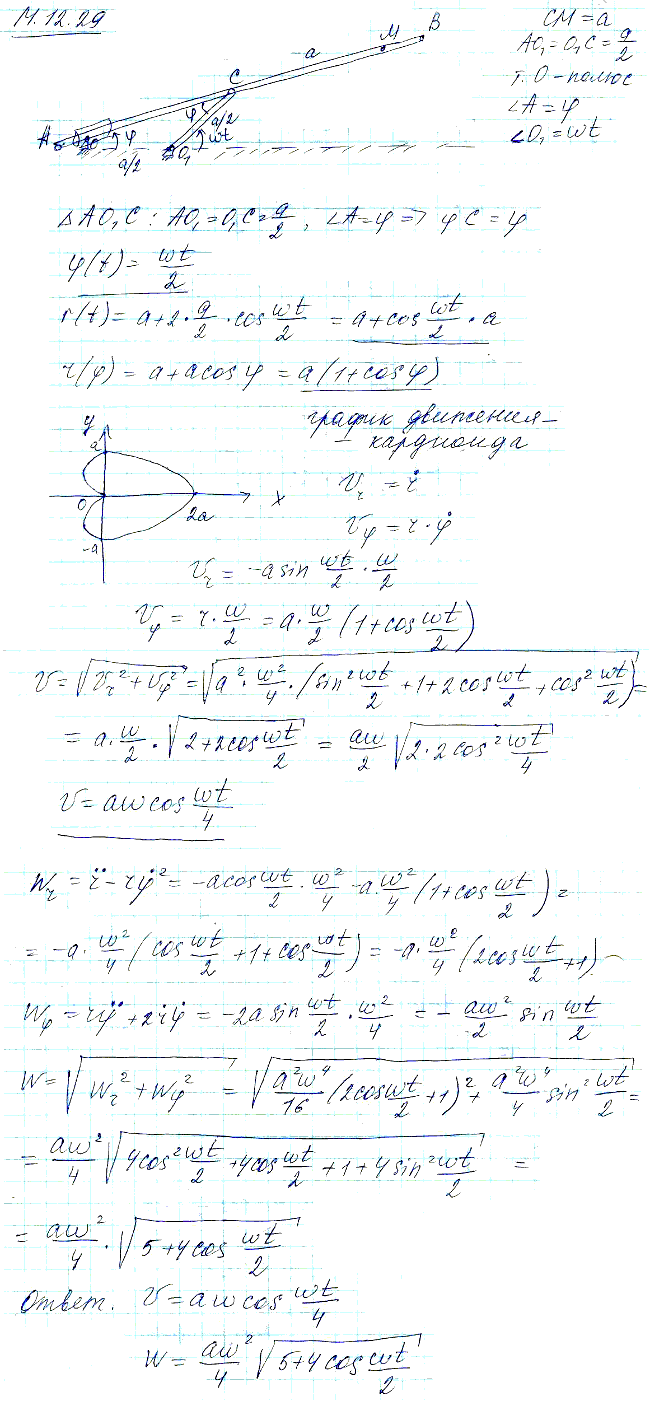 М.12.29
CM = a
AO₁ = O₁C = a/2
т. O - полюс
∠A = φ
∠O₁ = ωt
A
φ
a/2
O₁
ωt
a/2
φ
C
a
M
B
△AO₁C : AO₁ = O₁C = a/2, ∠A = φ => φC = φ
φ(t) = ωt/2
r(t) = a + 2·a/2·cos ωt/2 = a + cos ωt/2 · a
r(φ) = a + a cos φ = a(1 + cos φ)
график движения –
– кардиоида
y
a
O
2a
x
-a
V_r = ṙ
V_φ = r·φ̇
V_r = -a sin ωt/2 · ω/2
V_φ = r·ω/2 = a·ω/2 (1 + cos ωt/2)
V = √(V_r² + V_φ²) = √(a²·ω²/4·(sin² ωt/2 + 1 + 2cos ωt/2 + cos² ωt/2)) =
= a·ω/2·√(2 + 2cos ωt/2) = aω/2 √(2·2cos² ωt/4)
V = aω cos ωt/4
W_r = r̈ - rφ̇² = -a cos ωt/2 · ω²/4 - a·ω²/4 (1 + cos ωt/2) =
= -a·ω²/4 (cos ωt/2 + 1 + cos ωt/2) = -a·ω²/4 (2cos ωt/2 + 1)
W_φ = rφ̈ + 2ṙφ̇ = -2a sin ωt/2 · ω²/4 = - aω²/2 sin ωt/2
W = √(W_r² + W_φ²) = √(a²ω⁴/16 (2cos ωt/2 + 1)² + a²ω⁴/4 sin² ωt/2) =
= aω²/4 √(4cos² ωt/2 + 4cos ωt/2 + 1 + 4sin² ωt/2) =
= aω²/4 · √(5 + 4cos ωt/2)
Ответ. V = aω cos ωt/4
W = aω²/4 √(5 + 4cos ωt/2)